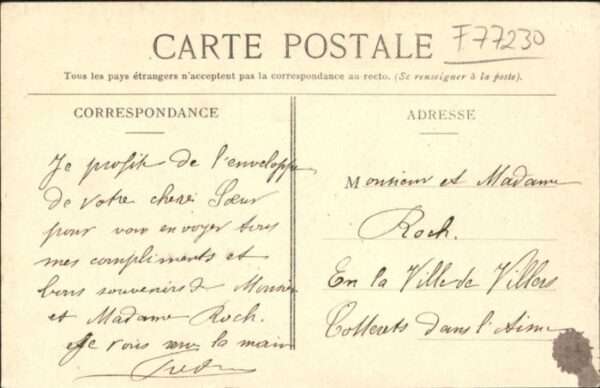 CARTE POSTALE
F77230
Tous les pays étrangers n'acceptent pas la correspondance au recto. (Se renseigner à la poste).
CORRESPONDANCE
Je profite de l'enveloppe
de votre cheri Sœur
pour vous envoyer tous
mes compliments et
bons souvenirs de Monsieur
et Madame Roch.
Je vous la main
ADRESSE
Monsieur et Madame
Roch.
En la Ville de Villers
Cotterets dans l'Aisne